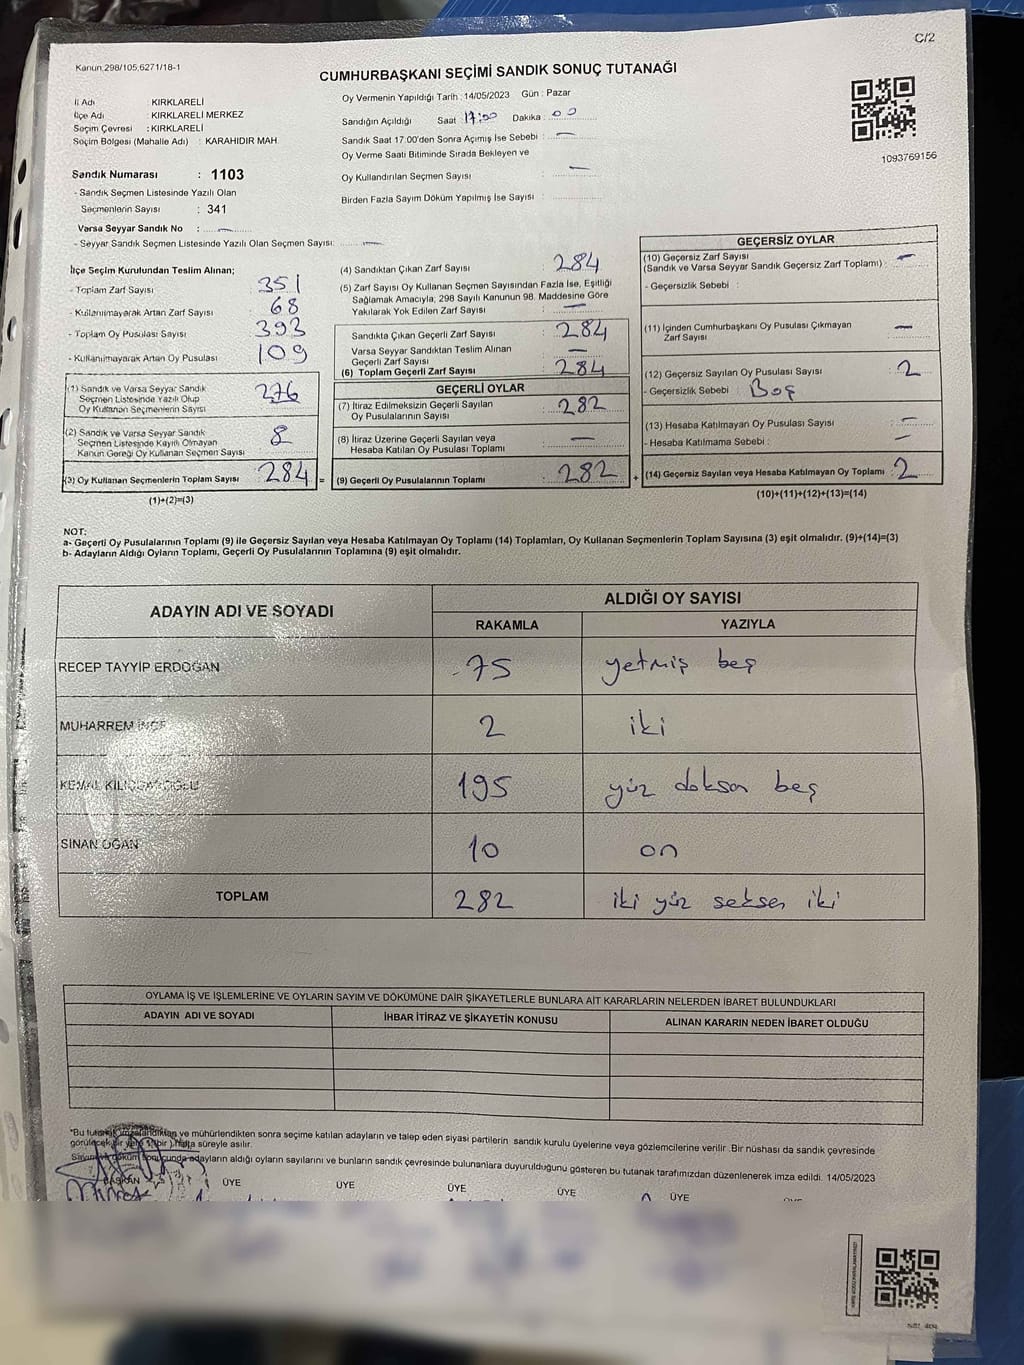 C/2
Kanun:298/105,6271/18-1
CUMHURBAŞKANI SEÇİMİ SANDIK SONUÇ TUTANAĞI
İl Adı : KIRKLARELİ
İlçe Adı : KIRKLARELİ MERKEZ
Seçim Çevresi : KIRKLARELİ
Seçim Bölgesi (Mahalle Adı) : KARAHIDIR MAH
Sandık Numarası : 1103
- Sandık Seçmen Listesinde Yazılı Olan
Seçmenlerin Sayısı : 341
Varsa Seyyar Sandık No : —
- Seyyar Sandık Seçmen Listesinde Yazılı Olan Seçmen Sayısı: —
Oy Vermenin Yapıldığı Tarih :14/05/2023 Gün : Pazar
Sandığın Açıldığı Saat :17:00 Dakika :00
Sandık Saat 17.00'den Sonra Açımış İse Sebebi : —
Oy Verme Saati Bitiminde Sırada Bekleyen ve
Oy Kullandırılan Seçmen Sayısı : —
Birden Fazla Sayım Döküm Yapılmış İse Sayısı :
1093769156
İlçe Seçim Kurulundan Teslim Alınan;
- Toplam Zarf Sayısı : 351
- Kullanılmayarak Artan Zarf Sayısı : 68
- Toplam Oy Pusulası Sayısı : 393
- Kullanılmayarak Artan Oy Pusulası : 109
(1) Sandık ve Varsa Seyyar Sandık
Seçmen Listesinde Yazılı Olup
Oy Kullanan Seçmenlerin Sayısı : 276
(2) Sandık ve Varsa Seyyar Sandık
Seçmen Listesinde Kayıtlı Olmayan
Kanun Gereği Oy Kullanan Seçmen Sayısı : 8
(3) Oy Kullanan Seçmenlerin Toplam Sayısı : 284 =
(1)+(2)=(3)
(4) Sandıktan Çıkan Zarf Sayısı : 284
(5) Zarf Sayısı Oy Kullanan Seçmen Sayısından Fazla İse, Eşitliği
Sağlamak Amacıyla, 298 Sayılı Kanunun 98. Maddesine Göre
Yakılarak Yok Edilen Zarf Sayısı : —
Sandıkta Çıkan Geçerli Zarf Sayısı : 284
Varsa Seyyar Sandıktan Teslim Alınan
Geçerli Zarf Sayısı : —
(6) Toplam Geçerli Zarf Sayısı : 284
GEÇERLİ OYLAR
(7) İtiraz Edilmeksizin Geçerli Sayılan
Oy Pusulalarının Sayısı : 282
(8) İtiraz Üzerine Geçerli Sayılan veya
Hesaba Katılan Oy Pusulası Toplamı : —
(9) Geçerli Oy Pusulalarının Toplamı : 282 +
GEÇERSİZ OYLAR
(10) Geçersiz Zarf Sayısı
(Sandık ve Varsa Seyyar Sandık Geçersiz Zarf Toplamı) : —
- Geçersizlik Sebebi :
(11) İçinden Cumhurbaşkanı Oy Pusulası Çıkmayan
Zarf Sayısı : —
(12) Geçersiz Sayılan Oy Pusulası Sayısı : 2
- Geçersizlik Sebebi : Boş
(13) Hesaba Katılmayan Oy Pusulası Sayısı : —
- Hesaba Katılmama Sebebi : —
(14) Geçersiz Sayılan veya Hesaba Katılmayan Oy Toplamı : 2
(10)+(11)+(12)+(13)=(14)
NOT:
a- Geçerli Oy Pusulalarının Toplamı (9) ile Geçersiz Sayılan veya Hesaba Katılmayan Oy Toplamı (14) Toplamları, Oy Kullanan Seçmenlerin Toplam Sayısına (3) eşit olmalıdır. (9)+(14)=(3)
b- Adayların Aldığı Oyların Toplamı, Geçerli Oy Pusulalarının Toplamına (9) eşit olmalıdır.
ADAYIN ADI VE SOYADI ALDIĞI OY SAYISI
RAKAMLA YAZIYLA
RECEP TAYYİP ERDOĞAN 75 yetmiş beş
MUHARREM İNCE 2 iki
KEMAL KILIÇDAROĞLU 195 yüz doksan beş
SİNAN OĞAN 10 on
TOPLAM 282 iki yüz seksen iki
OYLAMA İŞ VE İŞLEMLERİNE VE OYLARIN SAYIM VE DÖKÜMÜNE DAİR ŞİKAYETLERLE BUNLARA AİT KARARLARIN NELERDEN İBARET BULUNDUKLARI
ADAYIN ADI VE SOYADI İHBAR İTİRAZ VE ŞİKAYETİN KONUSU ALINAN KARARIN NEDEN İBARET OLDUĞU
*Bu tutanak imzalandıktan ve mühürlendikten sonra seçime katılan adayların ve talep eden siyasi partilerin sandık kurulu üyelerine veya gözlemcilerine verilir. Bir nüshası da sandık çevresinde
görülecek bir yere 1(bir) hafta süreyle asılır.
Sayım ve döküm sonucunda adayların aldığı oyların sayılarını ve bunların sandık çevresinde bulunanlara duyurulduğunu gösteren bu tutanak tarafımızdan düzenlenerek imza edildi. 14/05/2023
BAŞKAN ÜYE ÜYE ÜYE ÜYE ÜYE